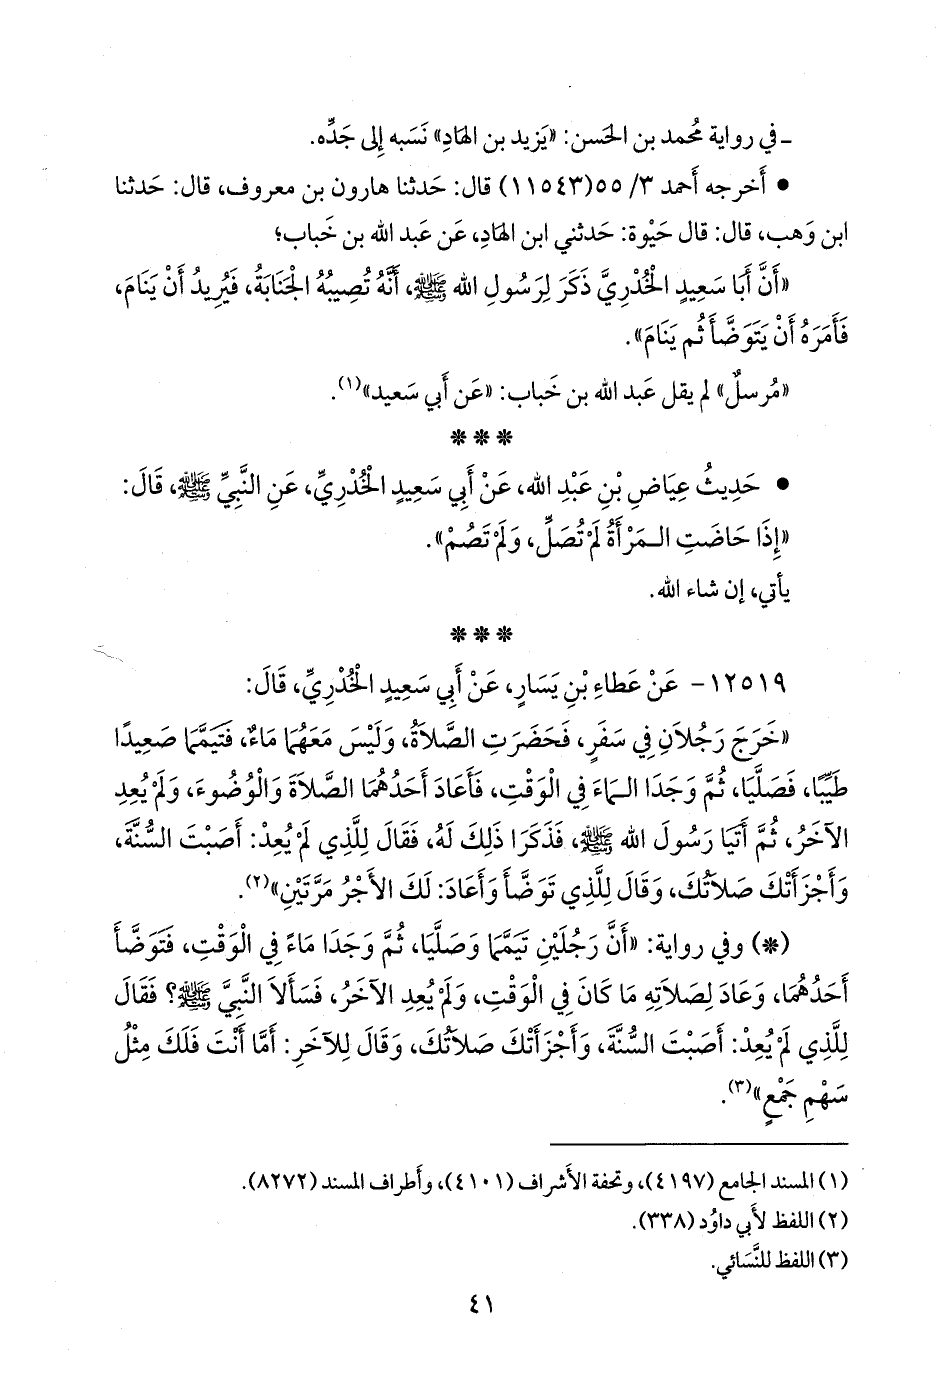 ـ في رواية مُحمد بن الحَسن: «يَزيد بن الهَادِ» نَسَبه إِلى جَدِّه.
• أَخرجه أَحمد ٣/ ٥٥(١١٥٤٣) قال: حَدثنا هارون بن معروف، قال: حَدثنا
ابن وَهب، قال: قال حَيْوة: حَدثني ابن الهَادِ، عَن عَبد الله بن خَباب؛
«أَنَّ أَبَا سَعِيدٍ الْخُدْرِيَّ ذَكَرَ لِرَسُولِ الله ﷺ، أَنَّهُ تُصِيبُهُ الْجَنَابَةُ، فَيُرِيدُ أَنْ يَنَامَ،
فَأَمَرَهُ أَنْ يَتَوَضَّأَ ثُم يَنَامَ».
«مُرسلٌ» لم يقل عَبد الله بن خَباب: «عَن أَبي سَعيد»(١).
* * *
• حَدِيثُ عِيَاضِ بْنِ عَبْدِ الله، عَنْ أَبِي سَعِيدٍ الْخُدْرِيِّ، عَنِ النَّبِيِّ ﷺ، قَالَ:
«إِذَا حَاضَتِ الـمَرْأَةُ لَمْ تُصَلِّ، وَلَمْ تَصُمْ».
يأتي، إن شاء الله.
* * *
١٢٥١٩- عَنْ عَطَاءِ بْنِ يَسَارٍ، عَنْ أَبِي سَعِيدٍ الْخُدْرِيِّ، قَالَ:
«خَرَجَ رَجُلاَنِ فِي سَفَرٍ، فَحَضَرَتِ الصَّلاَةُ، وَلَيْسَ مَعَهُمَا مَاءٌ، فَتَيَمَّمَا صَعِيدًا
طَيِّبًا، فَصَلَّيَا، ثُمَّ وَجَدَا الـمَاءَ فِي الْوَقْتِ، فَأَعَادَ أَحَدُهُمَا الصَّلاَةَ وَالْوُضُوءَ، وَلَمْ يُعِدِ
الآخَرُ، ثُمَّ أَتَيَا رَسُولَ الله ﷺ، فَذَكَرَا ذَلِكَ لَهُ، فَقَالَ لِلَّذِي لَمْ يُعِدْ: أَصَبْتَ السُّنَّةَ،
وَأَجْزَأَتْكَ صَلاَتُكَ، وَقَالَ لِلَّذِي تَوَضَّأَ وَأَعَادَ: لَكَ الأَجْرُ مَرَّتَيْنِ»(٢).
(*) وفي رواية: «أَنَّ رَجُلَيْنِ تَيَمَّمَا وَصَلَّيَا، ثُمَّ وَجَدَا مَاءً فِي الْوَقْتِ، فَتَوَضَّأَ
أَحَدُهُمَا، وَعَادَ لِصَلاَتِهِ مَا كَانَ فِي الْوَقْتِ، وَلَمْ يُعِدِ الآخَرُ، فَسَأَلاَ النَّبِيَّ ﷺ؟ فَقَالَ
لِلَّذِي لَمْ يُعِدْ: أَصَبْتَ السُّنَّةَ، وَأَجْزَأَتْكَ صَلاَتُكَ، وَقَالَ لِلآخَرِ: أَمَّا أَنْتَ فَلَكَ مِثْلُ
سَهْمِ جَمْعٍ»(٣).
(١) المسند الجامع (٤١٩٧)، وتحفة الأَشراف (٤١٠١)، وأَطراف المسند (٨٢٧٢).
(٢) اللفظ لأَبي داوُد (٣٣٨).
(٣) اللفظ للنَّسَائي.
٤١